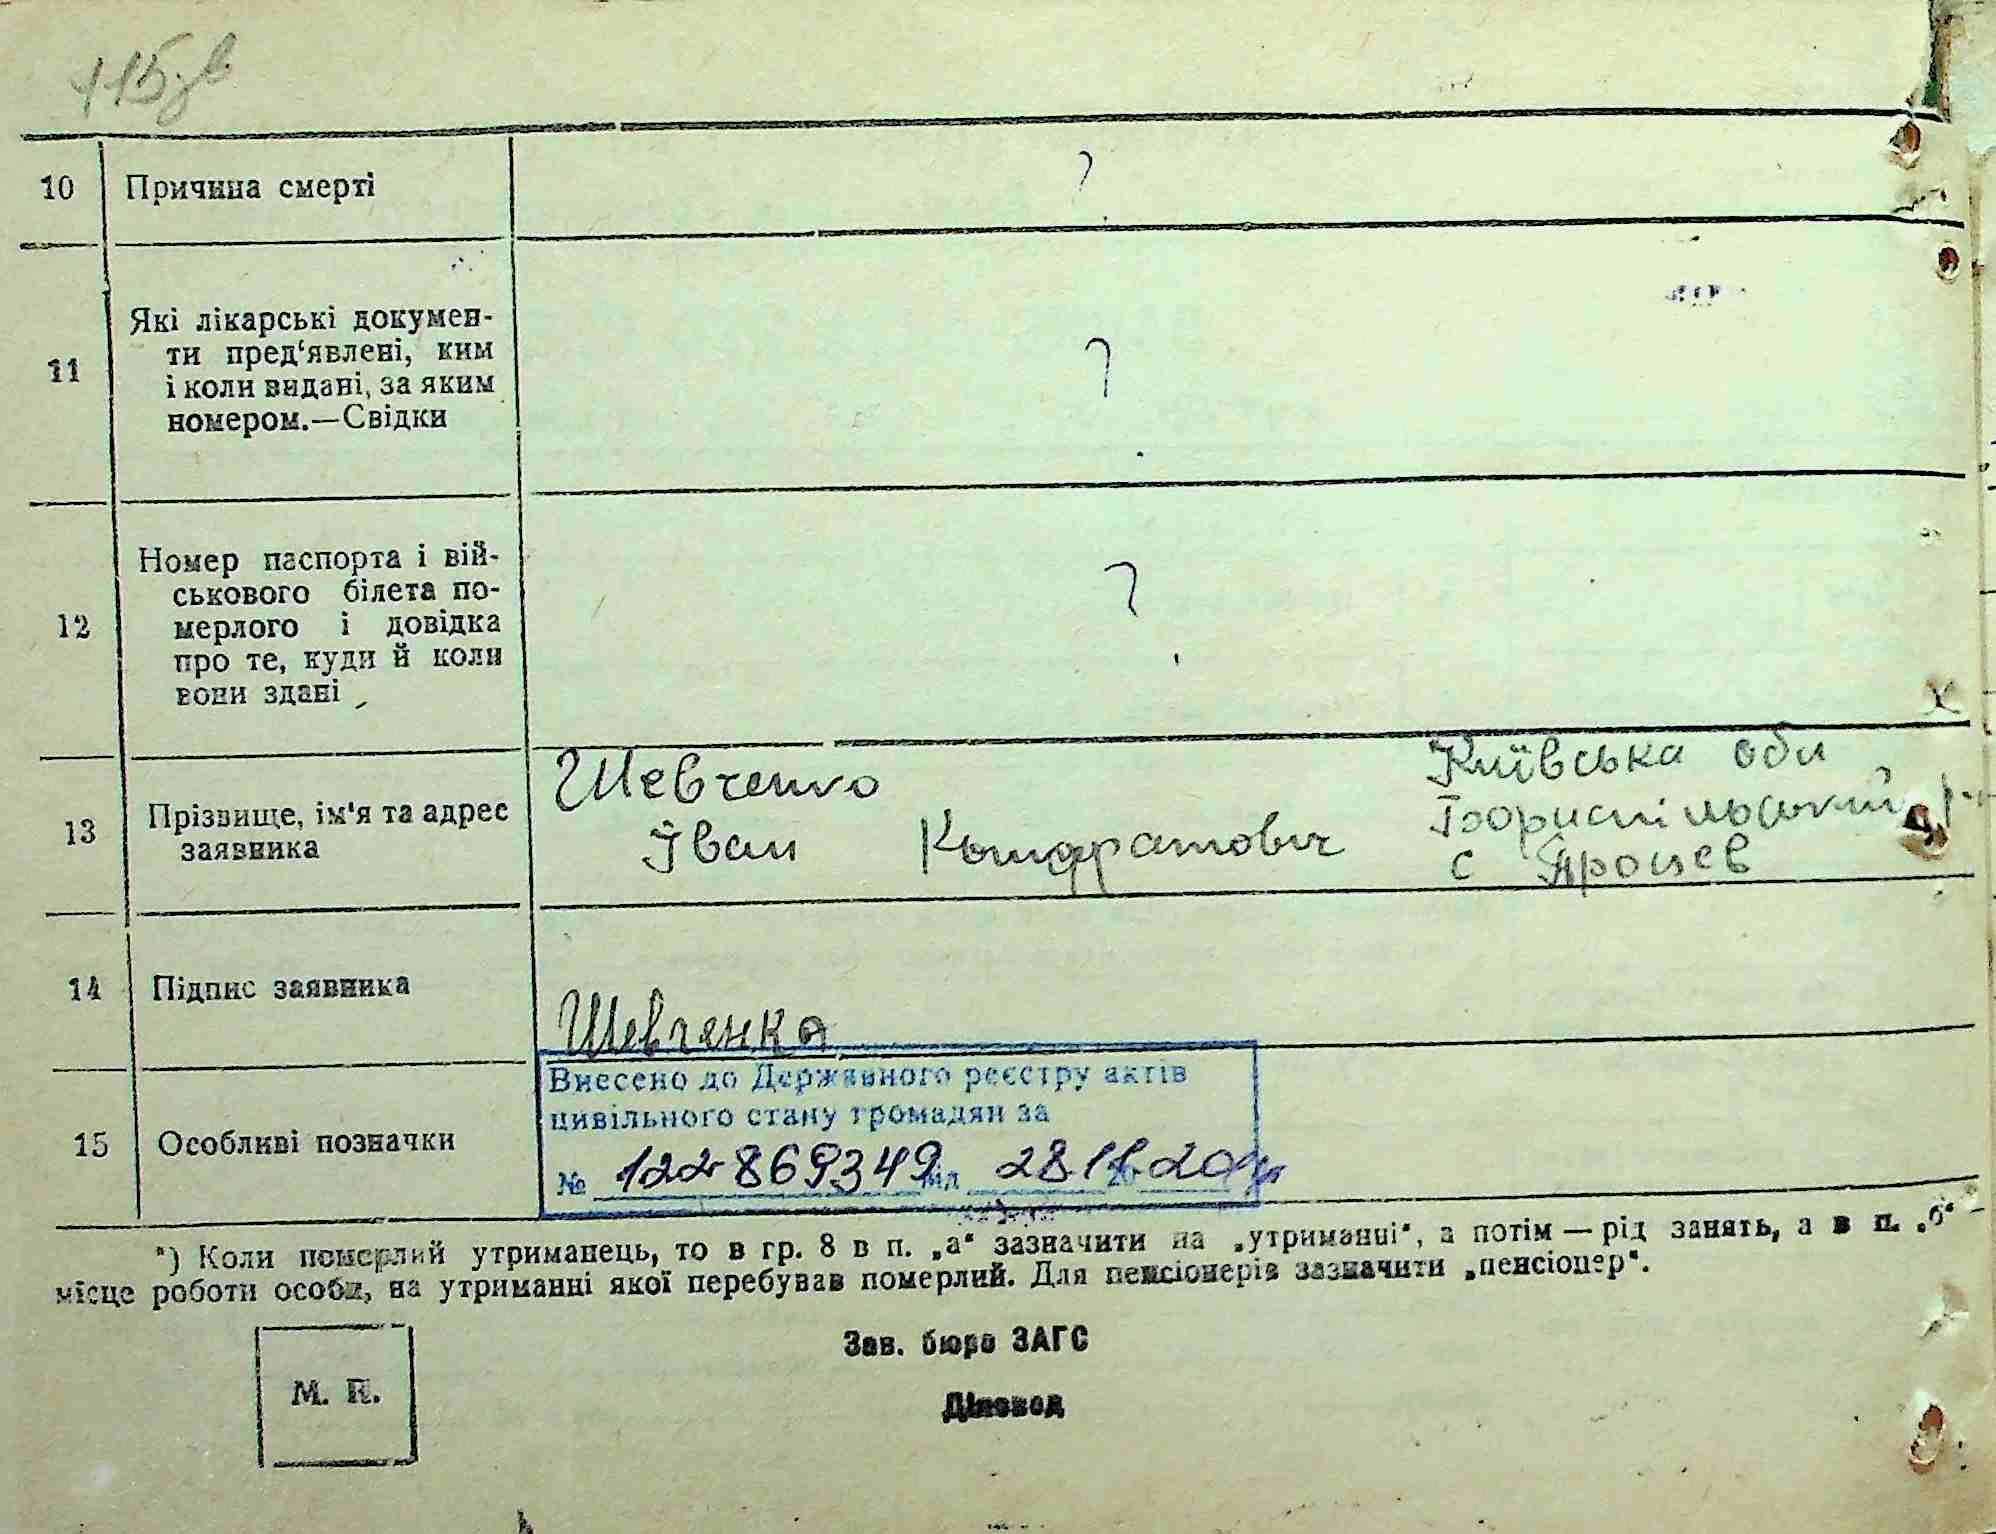 115 зв
10 Причина смерті ?
11 Які лікарські докумен-
ти пред'явлені, ким
і коли видані, за яким
номером.—Свідки
?
12 Номер паспорта і вій-
ськового білета по-
мерлого і довідка
про те, куди й коли
вони здані
?
13 Прізвище, ім'я та адрес
заявника
Шевченко
Іван Кондратович
Київська обл
Бориспільський р.
с Процев
14 Підпис заявника
Шевченка
15 Особливі позначки
Внесено до Державного реєстру актів
цивільного стану громадян за
№ 122869349 від 28 20
*) Коли померлий утриманець, то в гр. 8 в п. „а“ зазначити на „утриманні“, а потім — рід занять, а в п. „б“ –
місце роботи особи, на утриманні якої перебував померлий. Для пенсіонерів зазначити „пенсіонер“.
Зав. бюро ЗАГС
М. П.
Діловод